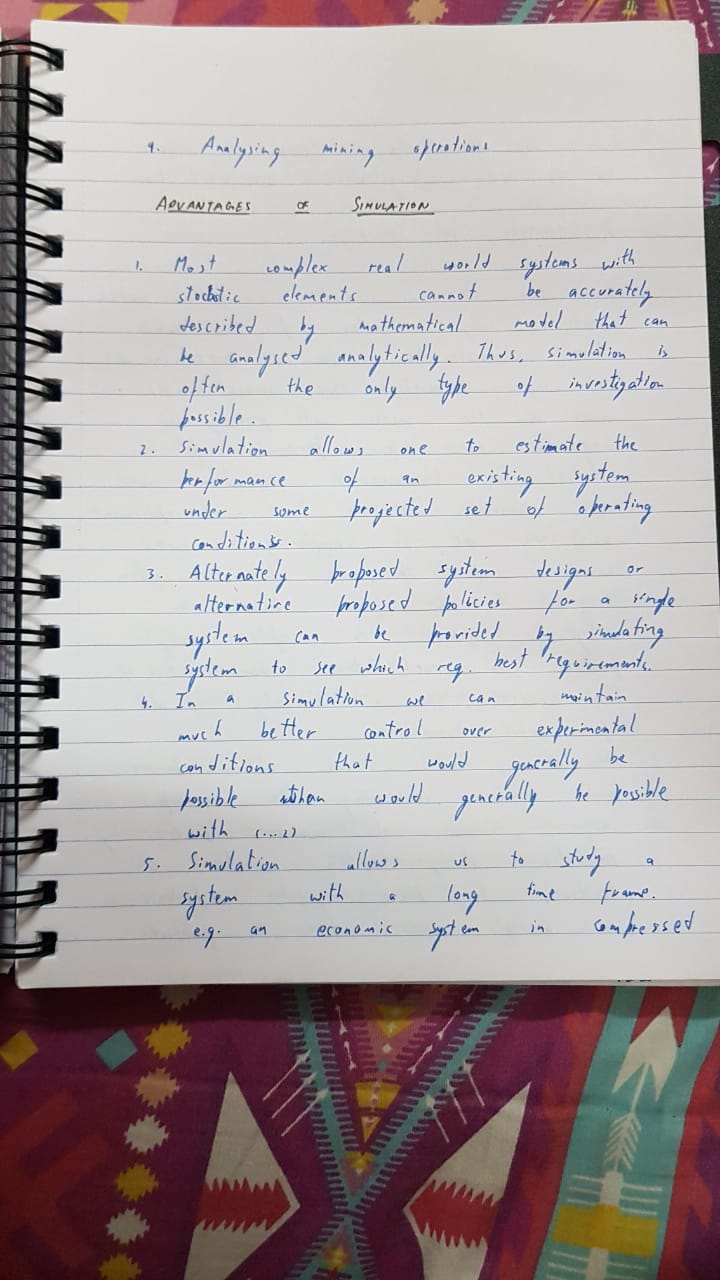 9. Analysing mining operations
ADVANTAGES OF SIMULATION
1. Most complex real world systems with
stochstic elements cannot be accurately
described by mathematical model that can
be analysed analytically. Thus, simulation is
often the only type of investigation
possible.
2. Simulation allows one to estimate the
performance of an existing system
under some projected set of operating
conditions.
3. Alternately proposed system designs or
alternative proposed policies for a single
system can be provided by simulating
system to see which req. best requirements.
4. In a simulation we can maintain
much better control over experimental
conditions that would generally be
possible than would generally be possible
with (...2)
5. Simulation allows us to study a
system with a long time frame.
e.g. an economic system in compressed